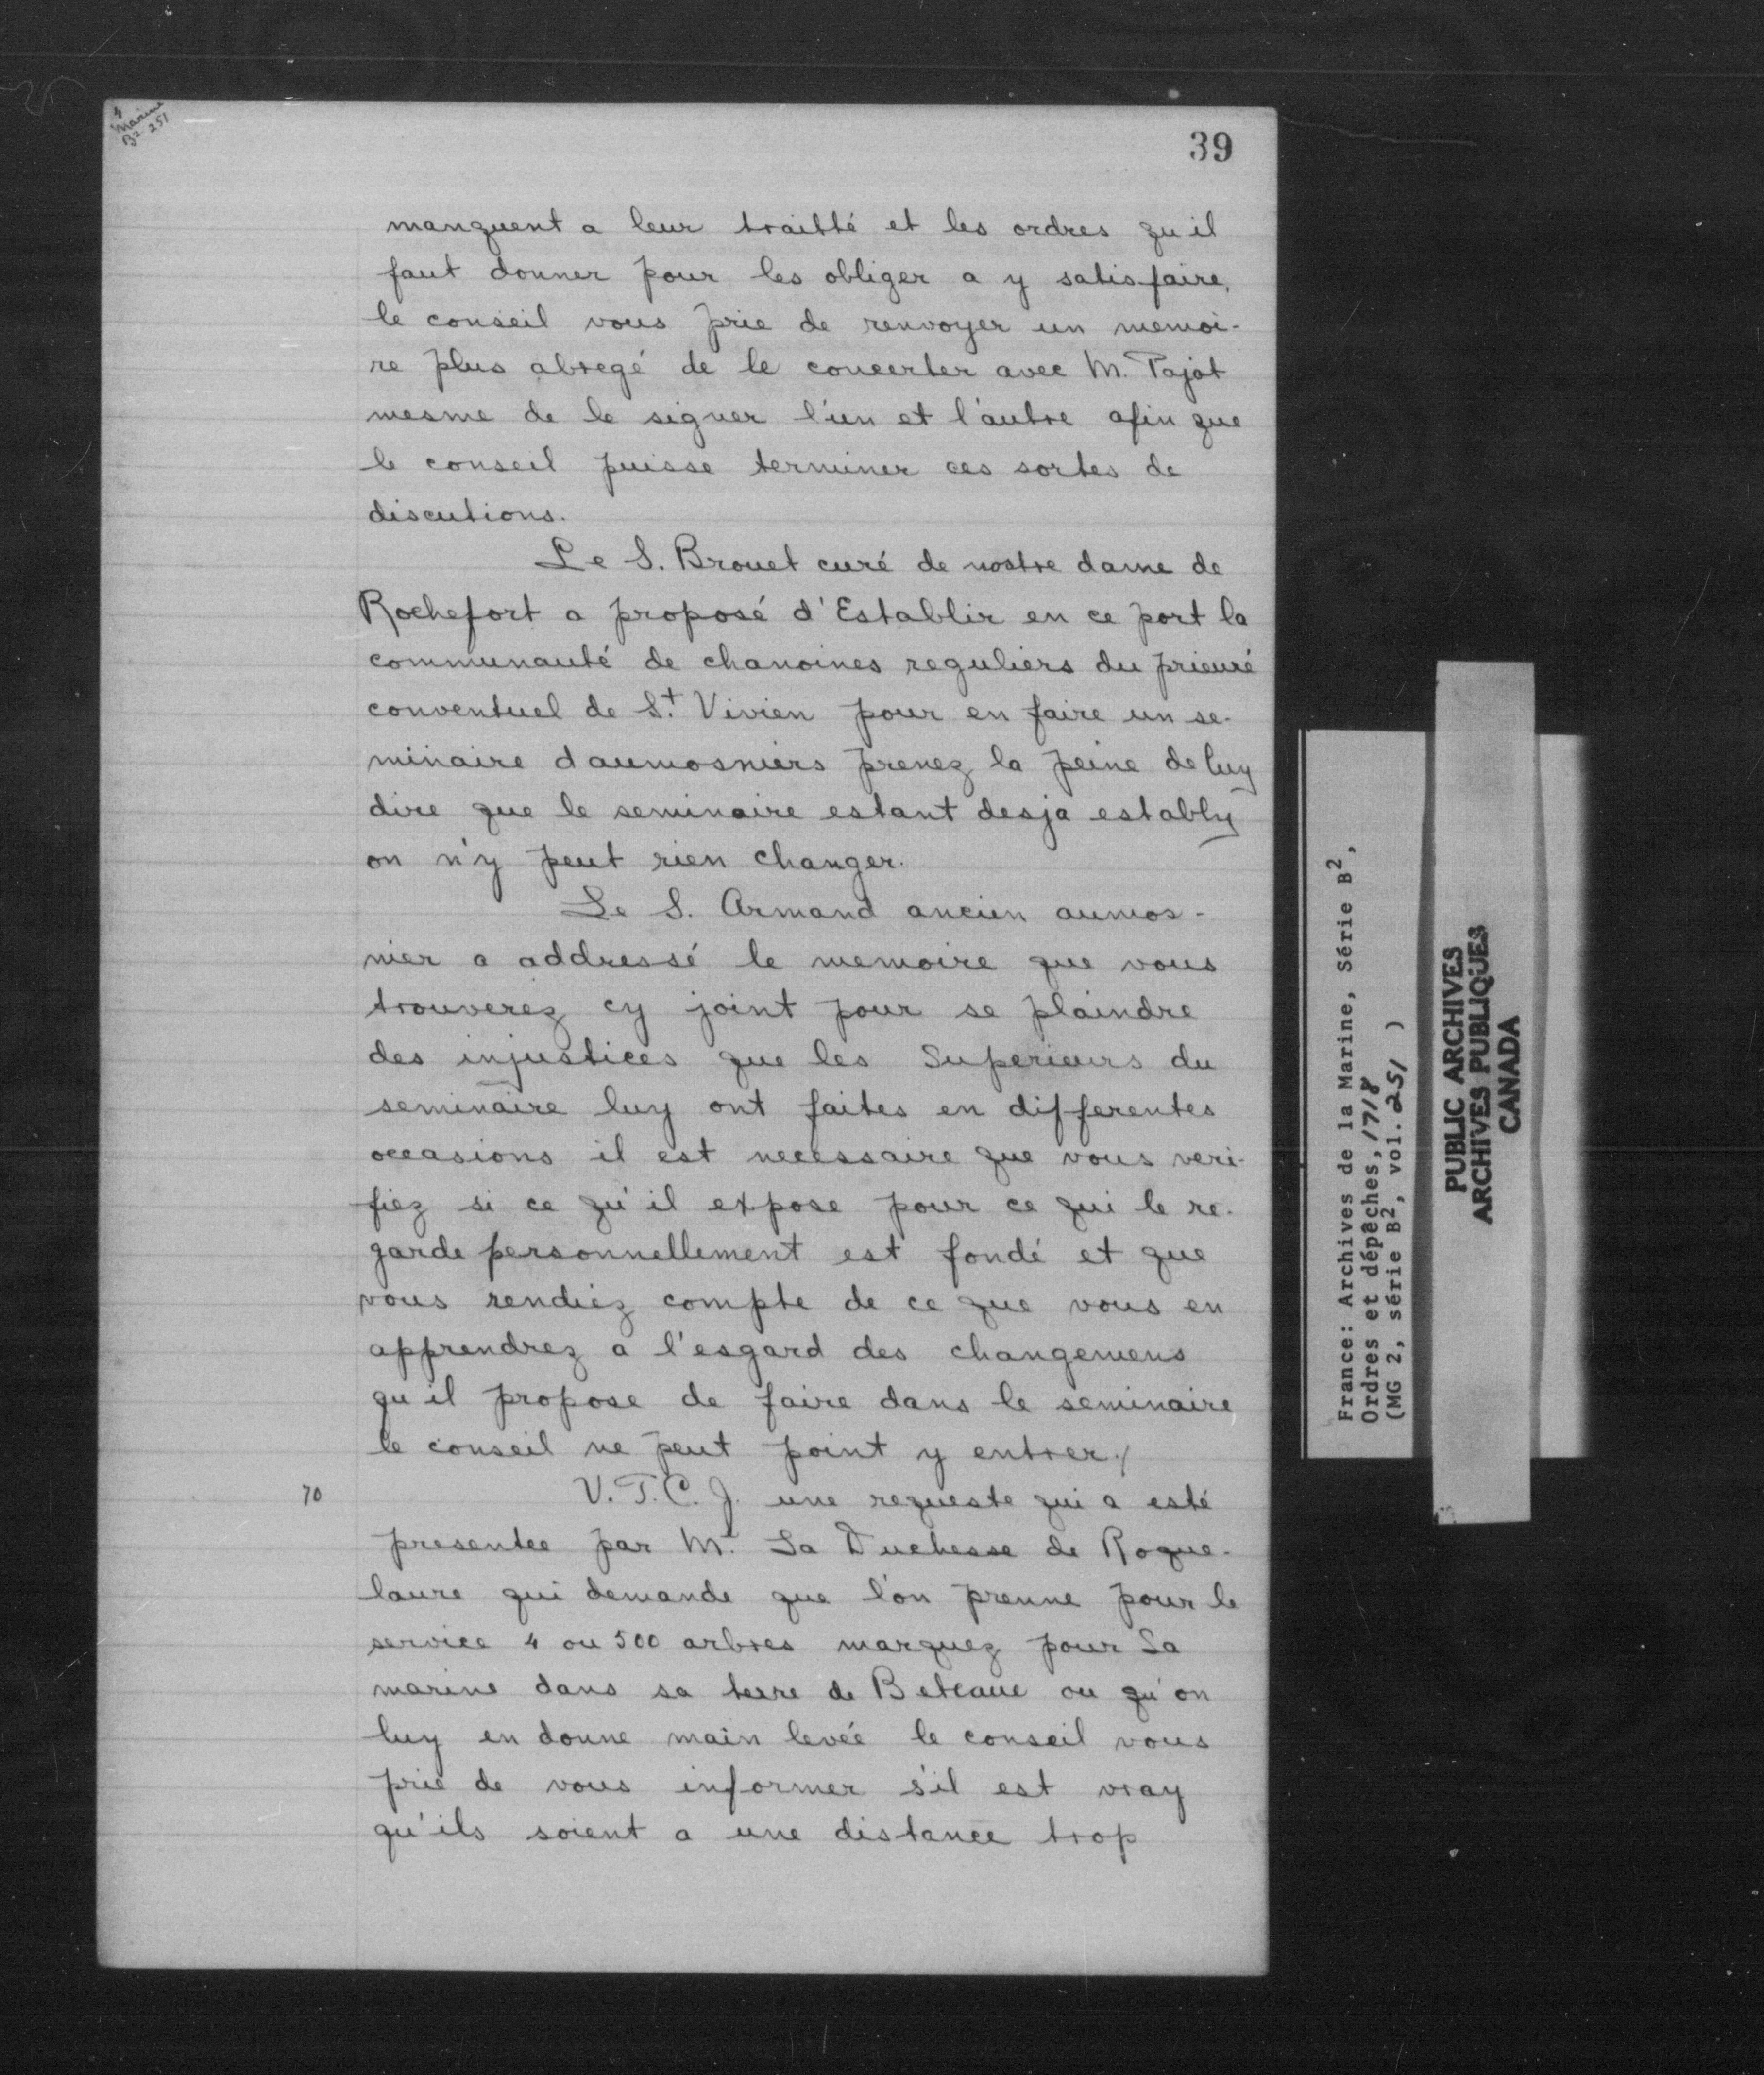 4
Marine
B² 251
39
manquent a leur traitté et les ordres qu il
faut donner pour les obliger a y satisfaire,
le conseil vous prie de renvoyer un memoi-
re plus abregé de le concerter avec M. Pajot
mesme de le signer l'un et l'autre afin que
le conseil puisse terminer ces sortes de
discutions.
Le S. Brouet curé de nostre dame de
Rochefort a proposé d'Establir en ce port la
communauté de chanoines reguliers du prieuré
conventuel de St. Vivien pour en faire un se-
minaire daumosniers prenez la peine de luy
dire que le seminaire estant desja estably
on n'y peut rien changer.
Le S. Armand ancien aumos-
nier a addressé le memoire que vous
trouverez cy joint pour se plaindre
des injustices que les Superieurs du
seminaire luy ont faites en differentes
occasions il est necessaire que vous veri-
fiez si ce qu'il expose pour ce qui le re-
garde personnellement est fondé et que
vous rendiez compte de ce que vous en
apprendrez a l'esgard des changemens
qu il propose de faire dans le seminaire
le conseil ne peut point y entrer./
70
V. T. C. J. une requeste qui a esté
presentee par M. La Duchesse de Roque-
laure qui demande que l'on prenne pour le
service 4 ou 500 arbres marquez pour La
marine dans sa terre de ou qu'on
luy en donne main levée le conseil vous
prie de vous informer s'il est vray
qu'ils soient a une distance trop
France: Archives de la Marine, Série B²,
Ordres et dépêches, 1718
(MG 2, série B², vol. 251 )
PUBLIC ARCHIVES
ARCHIVES PUBLIQUES
CANADA